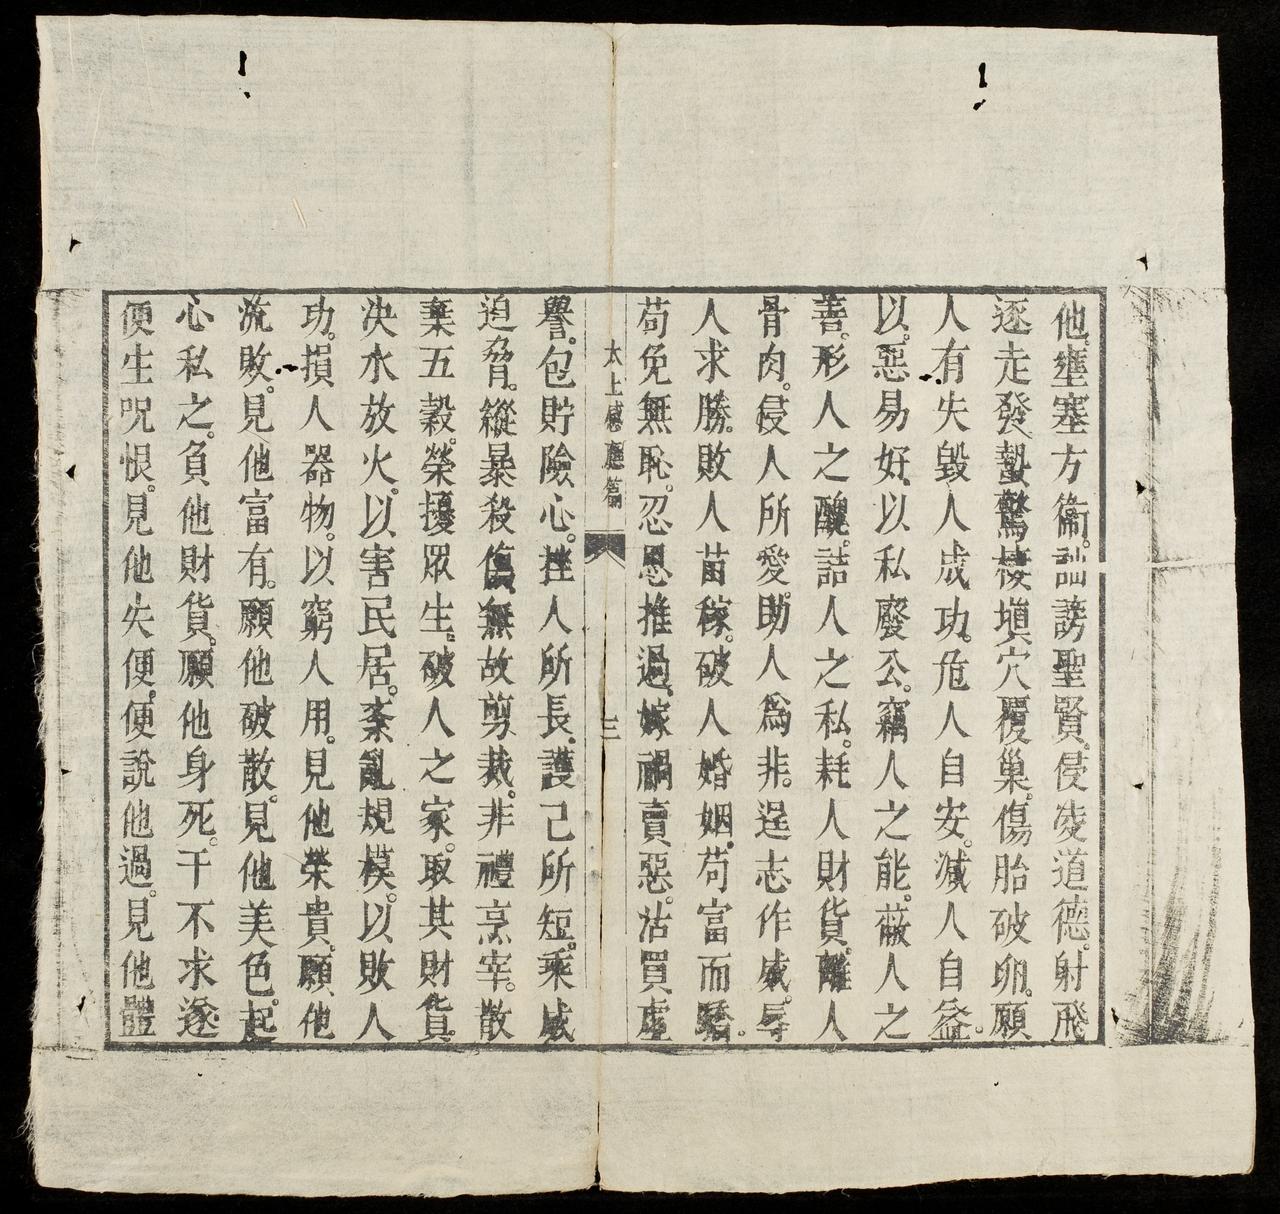 他。壅塞方術。訕謗聖賢。侵凌道德。射飛
逐走發蟄驚棲塡穴覆巢。傷胎破卵。願
人有失毀人成功。危人自安。減人自益。
以。惡易好、以私廢公。竊人之能。蔽人之
善。形人之醜。詰人之私。耗人財貨。離人
骨肉。侵人所愛。助人爲非。逞志作威。辱
人求勝。敗人苗稼。破人婚姻。苟富而驕。
苟免無恥。忍恩推過。嫁禍賣惡。沽買虛
太上感應篇 三
譽。包貯險心。挫人所長。護己所短。乘威
迫脅。縱暴殺傷。無故剪裁。非禮烹宰。散
棄五穀。榮擾眾生。破人之家。取其財貨。
决水放火。以害民居。紊亂規模。以敗人
功。損人器物。以窮人用。見他榮貴。願他
流敗。見他富有。願他破散。見他美色。起
心私之。負他財貨。願他身死。干不求遂
便生呪恨。見他失便。便說他過。見他體